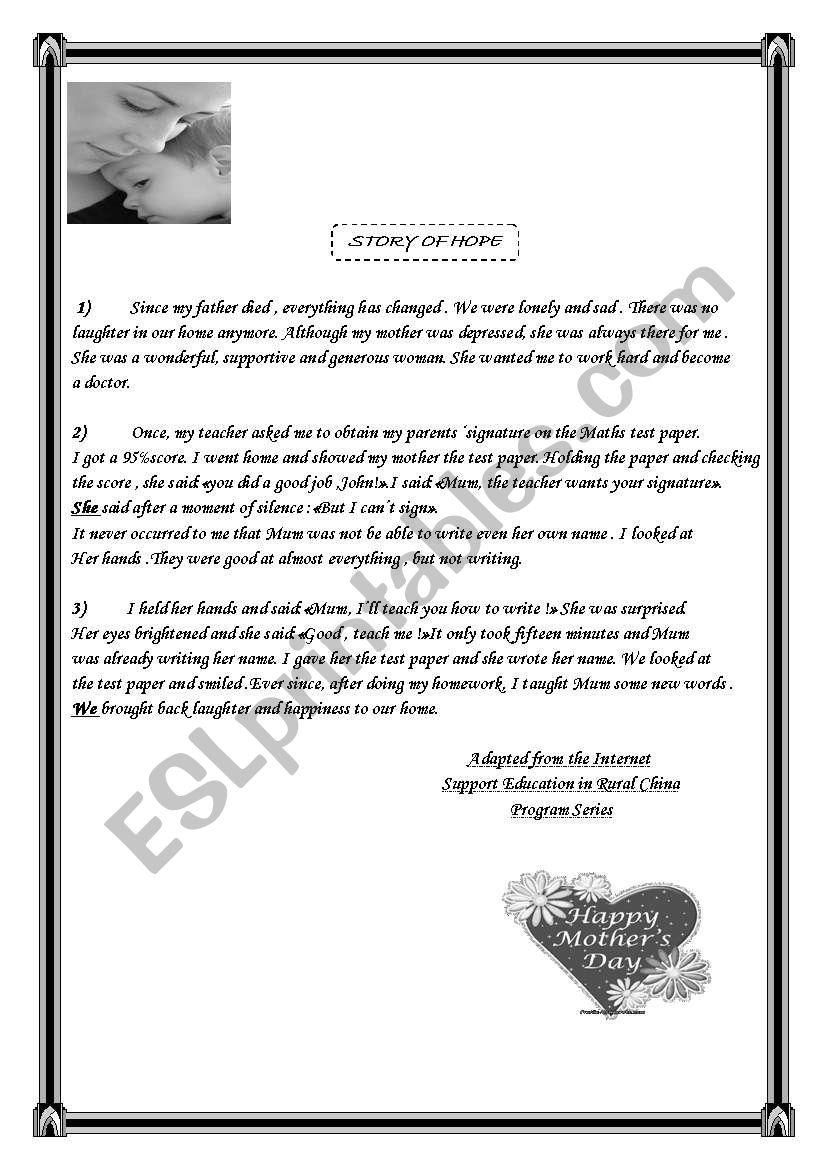 STORY OF HOPE
1) Since my father died , everything has changed . We were lonely and sad . There was no
laughter in our home anymore. Although my mother was depressed, she was always there for me .
She was a wonderful, supportive and generous woman. She wanted me to work hard and become
a doctor.
2) Once, my teacher asked me to obtain my parents ´signature on the Maths test paper.
I got a 95%score. I went home and showed my mother the test paper. Holding the paper and checking
the score , she said: «you did a good job ,John!». I said: «Mum, the teacher wants your signature».
She said after a moment of silence : «But I can´t sign».
It never occurred to me that Mum was not be able to write even her own name . I looked at
Her hands .They were good at almost everything , but not writing.
3) I held her hands and said: «Mum, I´ll teach you how to write !» She was surprised.
Her eyes brightened and she said: «Good , teach me !» It only took fifteen minutes and Mum
was already writing her name. I gave her the test paper and she wrote her name. We looked at
the test paper and smiled .Ever since, after doing my homework, I taught Mum some new words .
We brought back laughter and happiness to our home.
Adapted from the Internet
Support Education in Rural China
Program Series
Happy
Mother's
Day
ESLprintables.com